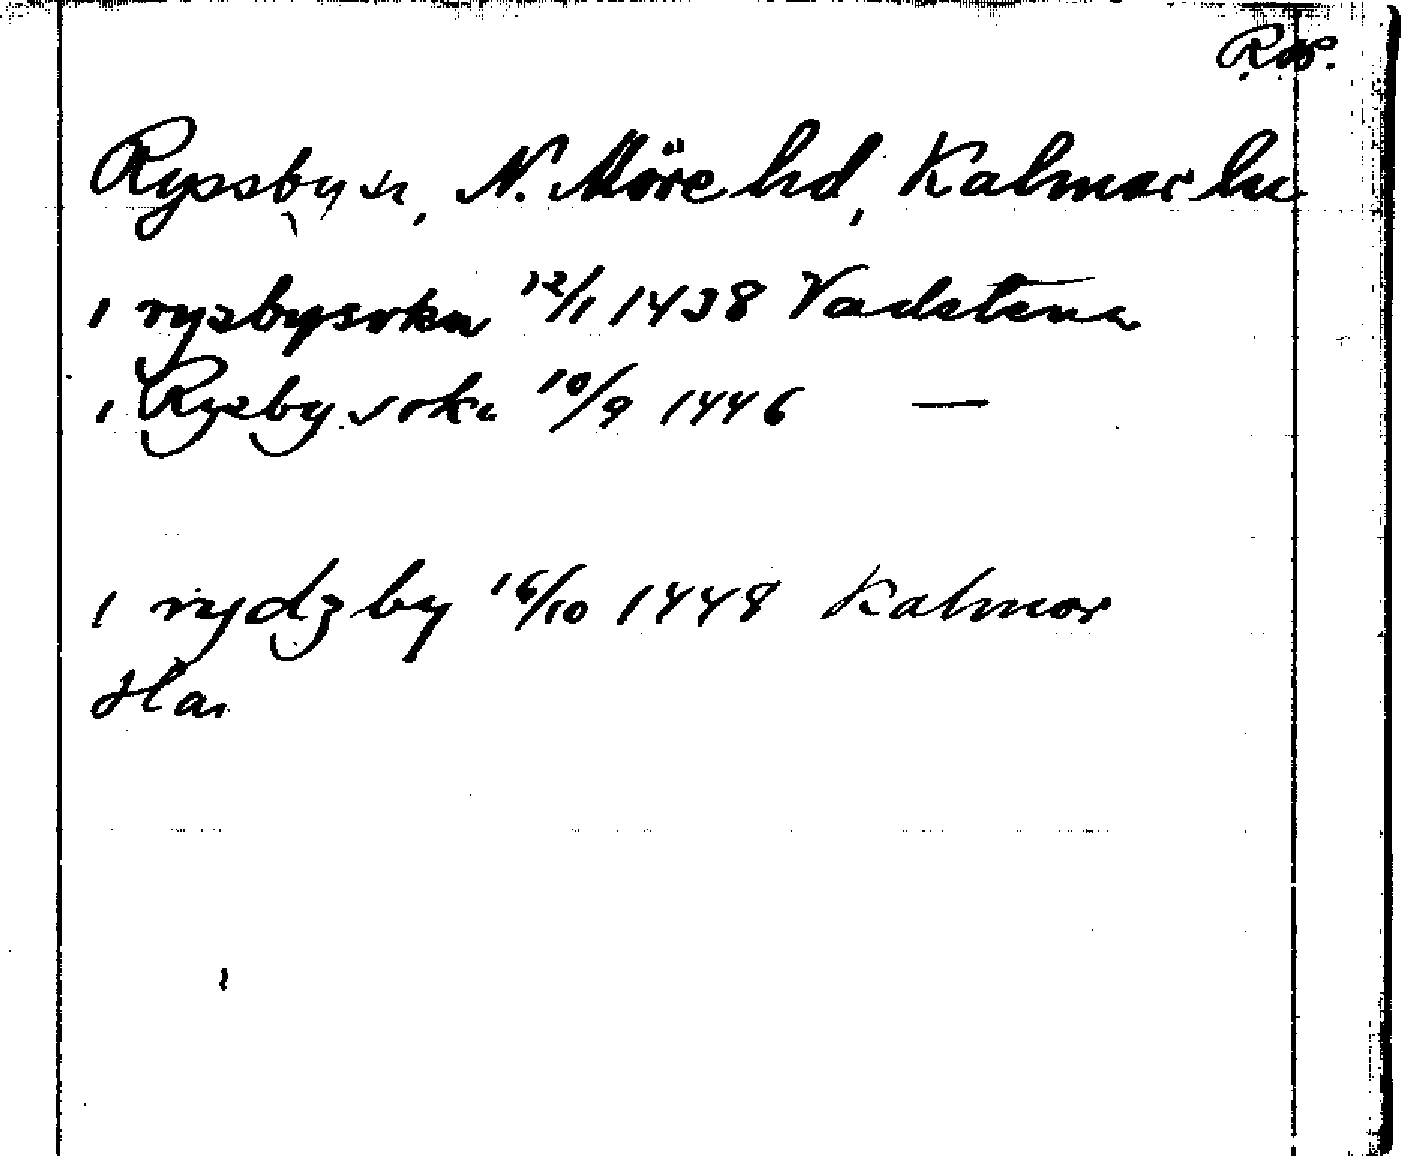 Ryssby sn, N. Möre hd, Kalmar län
i rysbysokn 12/1 1438 Vadstena
i Rysby sokn 10/9 1446 —
i rydzby 16/10 1448 Kalmar